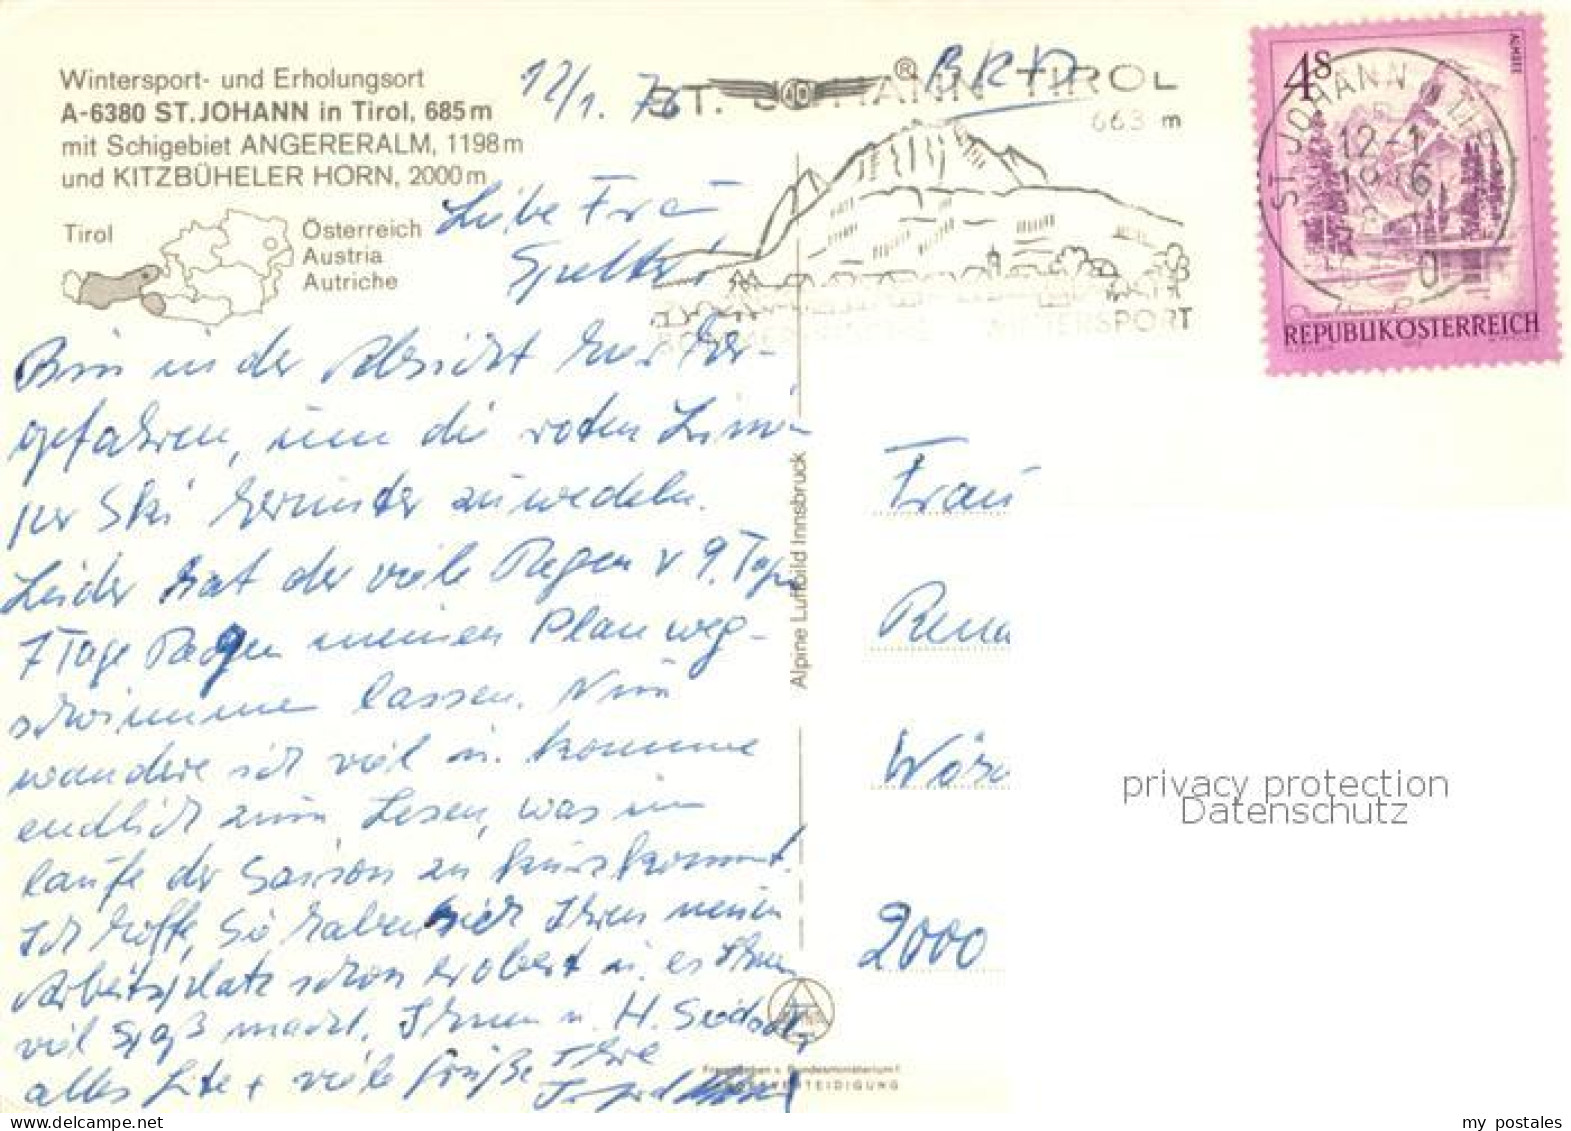 Wintersport- und Erholungsort
A-6380 ST. JOHANN in Tirol, 685 m
mit Schigebiet ANGERERALM, 1198 m
und KITZBÜHELER HORN, 2000 m
Tirol
Österreich
Austria
Autriche
12/1. 76
®
ST. JOHANN TIROL
663 m
WINTERSPORT
4S
ALMSEE
ST. JOHANN
12-1
REPUBLIK ÖSTERREICH
Liebe Frau
Bin in der Absicht hier her-
gefahren, um die roten
per Ski herunter zu wedeln.
Leider hat der viele Regen v 9. Tage
7 Tage Regen meinen Plan weg-
schwimmen lassen. Nun
wandere ich viel u. komme
endlich zum Lesen, was im
laufe der Saison zu kurz kommt.
Ich hoffe, Sie haben sich Ihren neuen
Arbeitsplatz schon erobert u. es Ihnen
viel Spaß macht. Ihnen u. H.
alles Gute + viele Grüße Ihre
Alpine Luftbild Innsbruck
Frau
Rena
Wörs
2000
privacy protection
Datenschutz
my postales